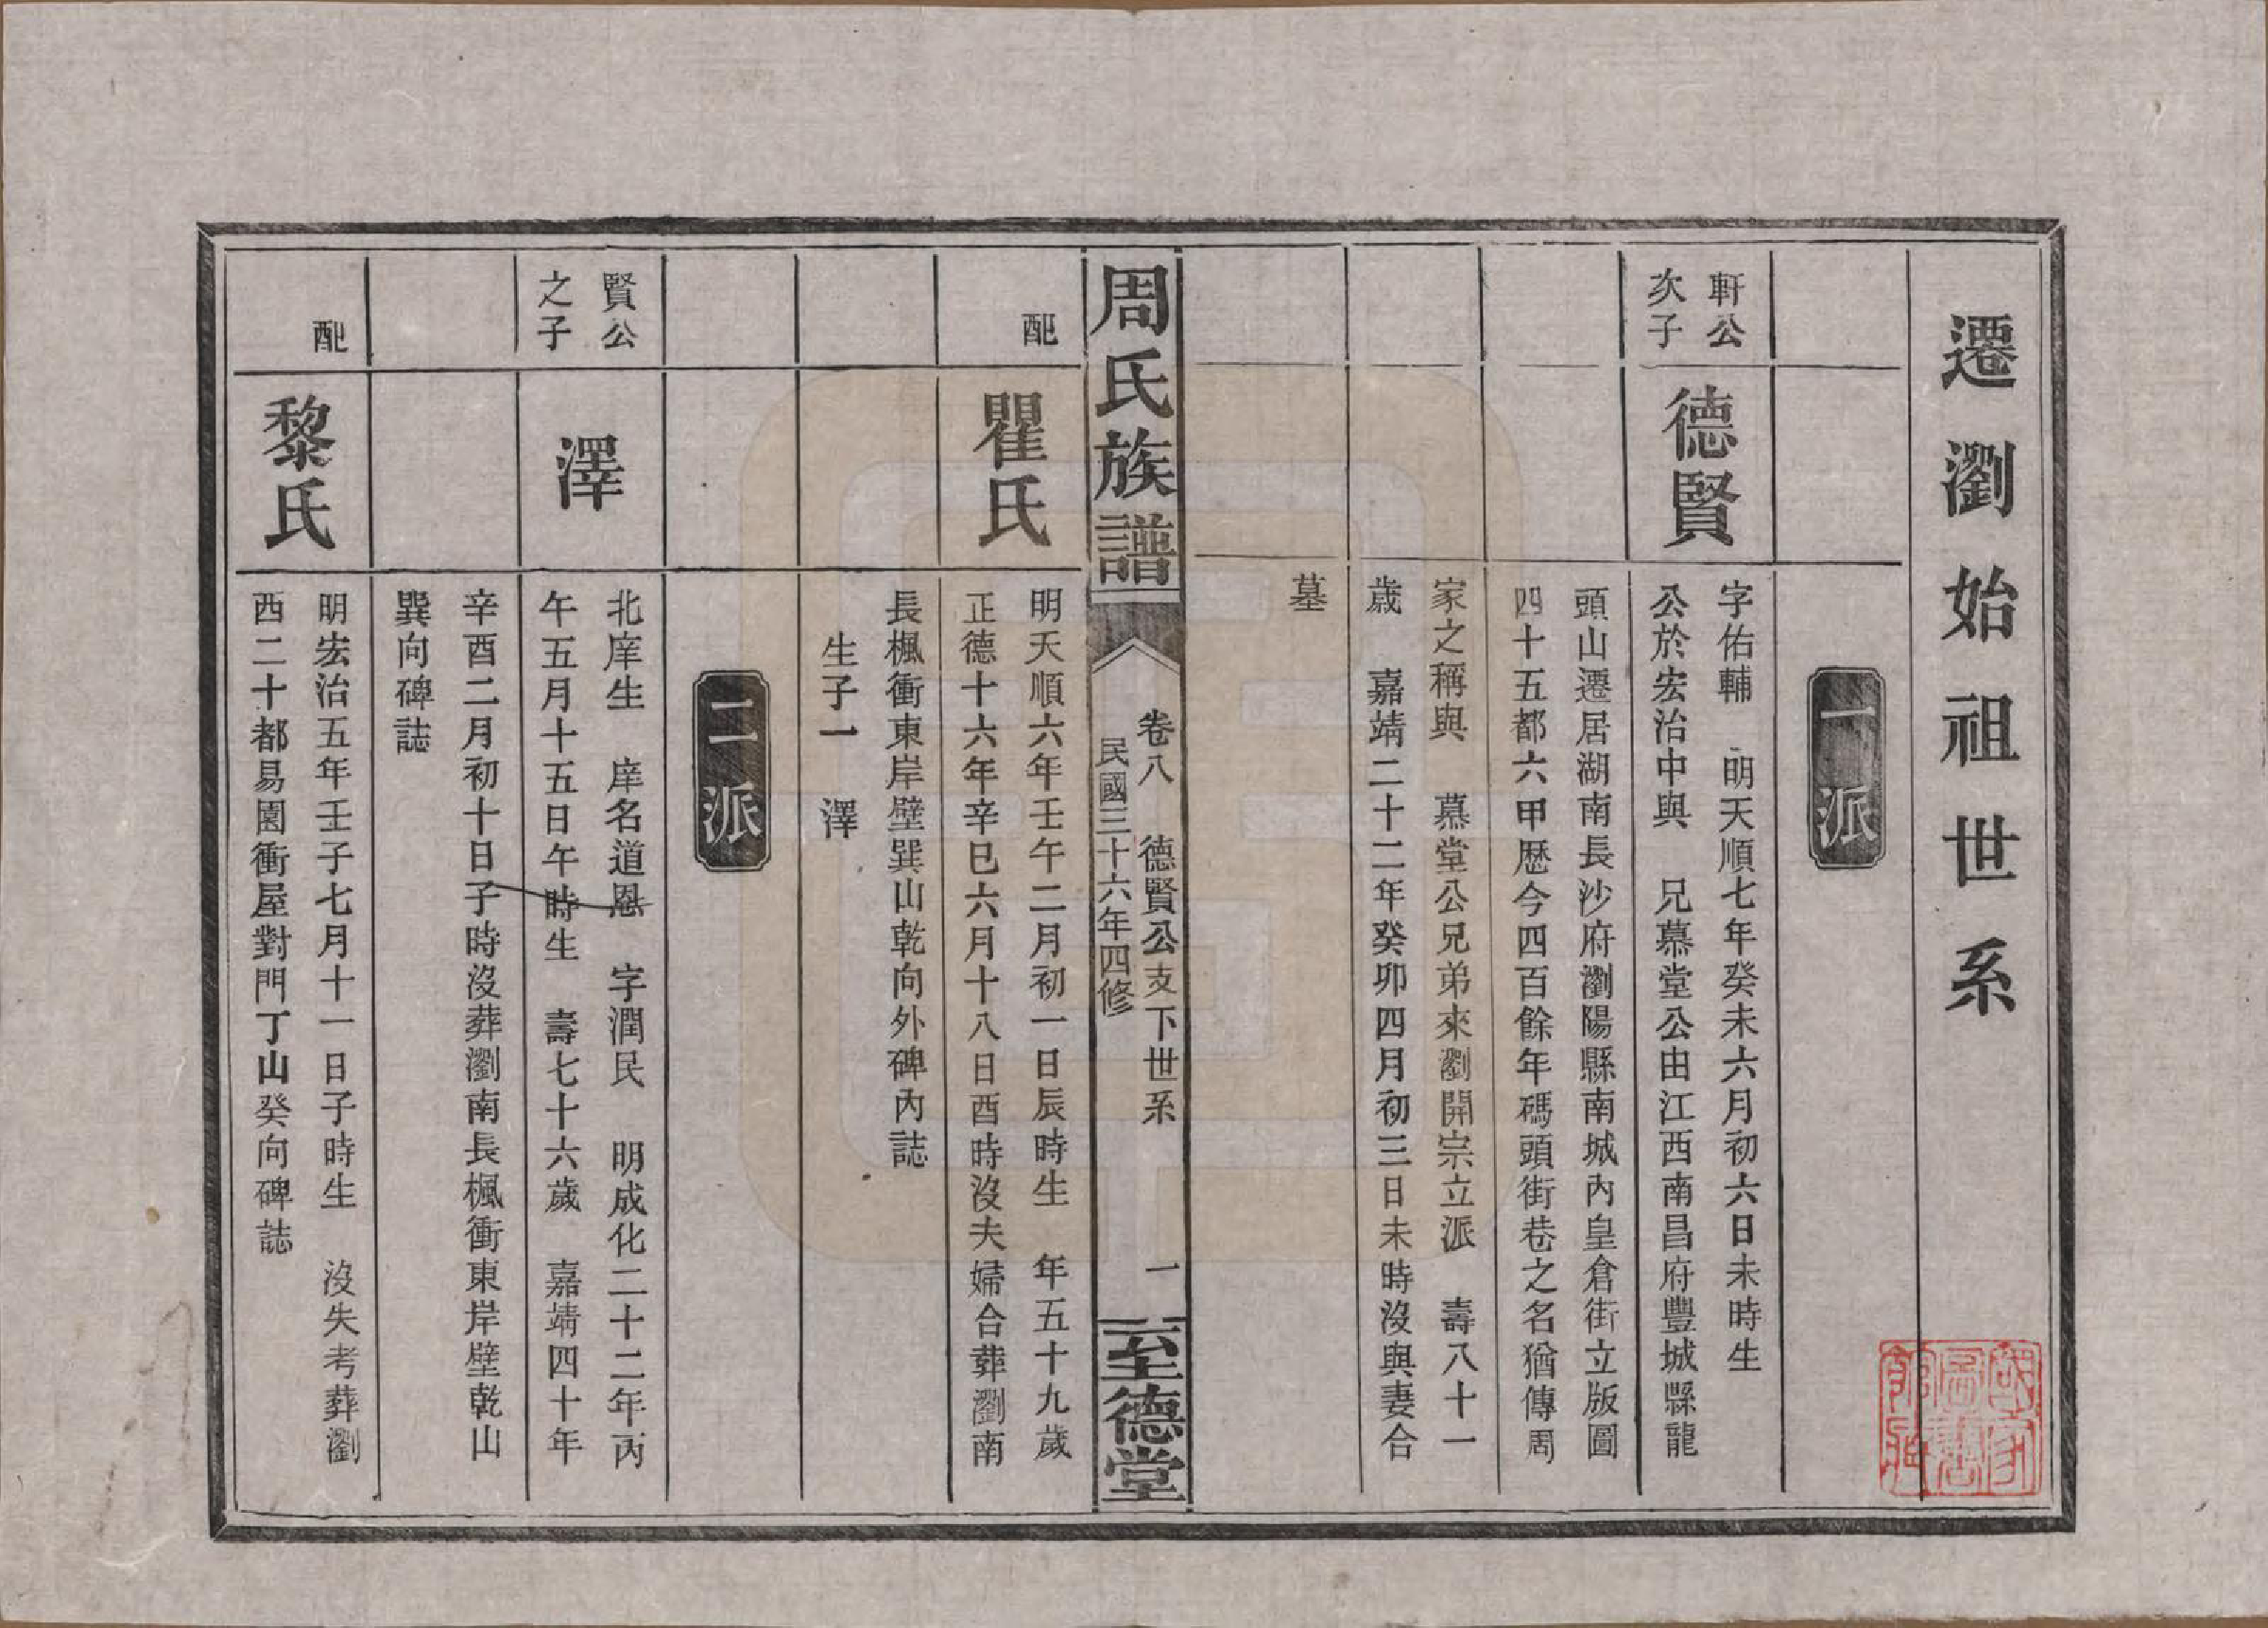 遷瀏始祖世系
一派
軒公
次子
德賢
字佑輔　明天順七年癸未六月初六日未時生
公於宏治中與　兄慕堂公由江西南昌府豐城縣龍
頭山遷居湖南長沙府瀏陽縣南城內皇倉街立版圖
四十五都六甲歷今四百餘年碼頭街巷之名猶傳周
家之稱與　慕堂公兄弟來瀏開宗立派　壽八十一
歲　嘉靖二十二年癸卯四月初三日未時沒與妻合
墓
周氏族譜
卷八　德賢公支下世系　一
民國三十六年四修
至德堂
配
瞿氏
明天順六年壬午二月初一日辰時生　年五十九歲
正德十六年辛巳六月十八日酉時沒夫婦合葬瀏南
長楓衝東岸壁巽山乾向外碑內誌
生子一　澤
二派
賢公
之子
澤
北庠生　庠名道恩　字潤民　明成化二十二年丙
午五月十五日午時生　壽七十六歲　嘉靖四十年
辛酉二月初十日子時沒葬瀏南長楓衝東岸壁乾山
巽向碑誌
配
黎氏
明宏治五年壬子七月十一日子時生　沒失考葬瀏
西二十都易園衝屋對門丁山癸向碑誌
國家
圖書
館藏